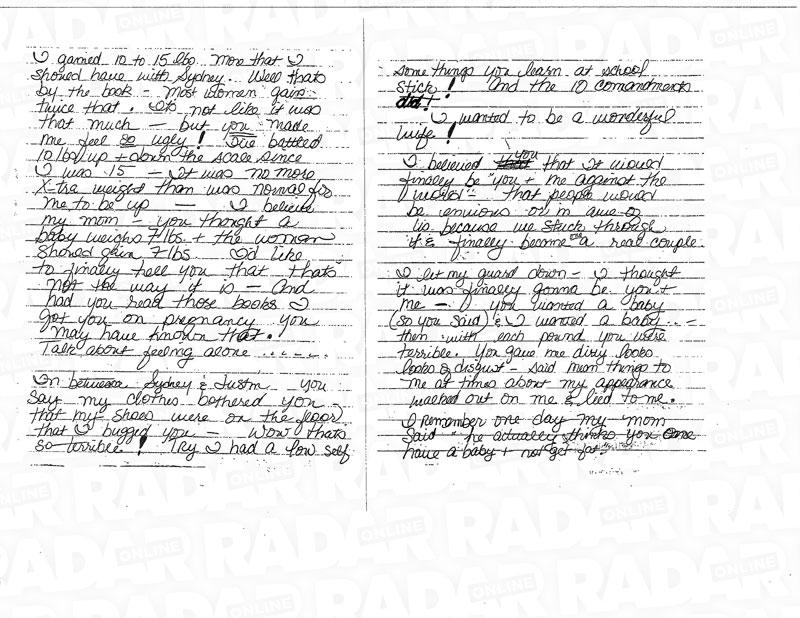 I gained 10 to 15 lbs more that I
shoned have with Sydney. Well thats
by the book - Most women gain
twice that. Its not like it was
that much - but you made
me feel so ugly! I've battled
10 lbs up + down the scale since
I was 15 - It was no more
X-tra weight than was normal for
me to be up - I believe
my mom - you thought a
baby weighs 7 lbs + the woman
should gain 7 lbs. I'd like
to finally tell you that thats
not the way it is - And
had you read those books I
got you on pregnancy you
may have known that!
Talk about feeling alone ......
In between Sydney & Justin - you
say my clothes bothered you -
that my shoes were on the floor,
that I bugged you - Wow thats
so terrible! Try I had a low self
some things you learn at school
stick! And the 10 comandments
did!
I wanted to be a wonderful
wife!
I believed you that it would
finally be "you + me against the
world" - that people would
be envious or in awe of
us because we stuck through
it & finally become a real couple.
I let my guard down - I thought
it was finally gonna be you +
me - you wanted a baby
(so you said) & I wanted a baby ...-
then with each pound you were
terrible. You gave me dirty looks
looks of disgust - said mean things to
me at times about my appearance
walked out on me & lied to me.
I remember one day my mom
said "he actually thinks you can
have a baby + not get fat."
RADAR ONLINE